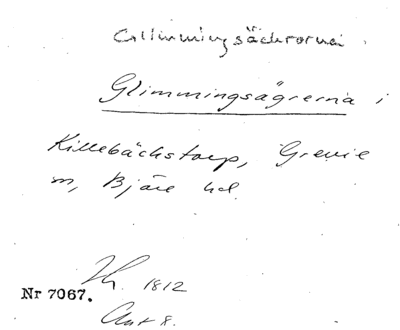 Glimmingsäckrorna
Glimmingsägrerna i
Killebäckstorp, Grevie
sn, Bjäre hd.
1812
Nr 7067.
Akt 8.